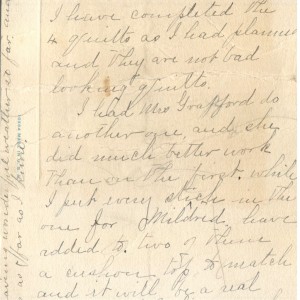 I have completed the
4 quilts as I had planned
and they are not bad
looking quilts.
I had Mrs Grafford do
another one, and she
did much better work
than on the first. while
I put every stich in the
one for Mildred, have
added to two of them
a cushion top to match
and it will be a real